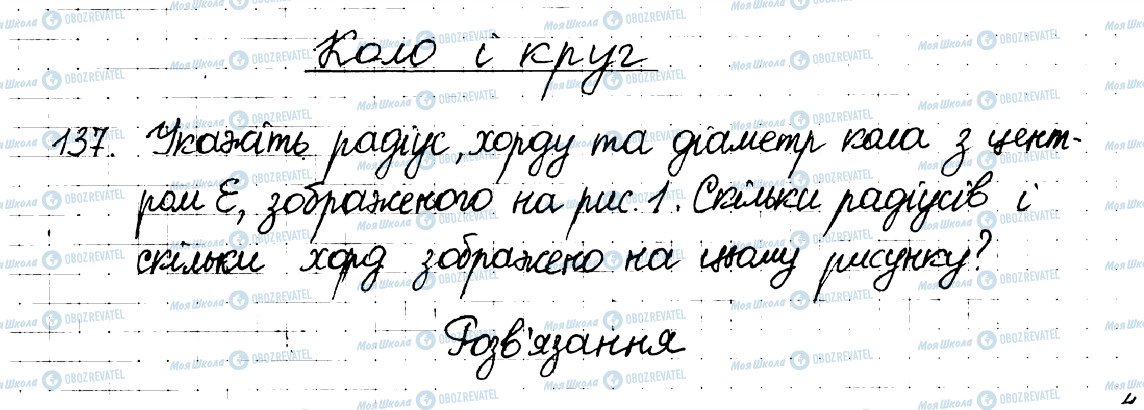 Коло і круг
137. Укажіть радіус, хорду та діаметр кола з цент-
ром Е, зображеного на рис. 1. Скільки радіусів і
скільки хорд зображено на цьому рисунку?
Розв'язання